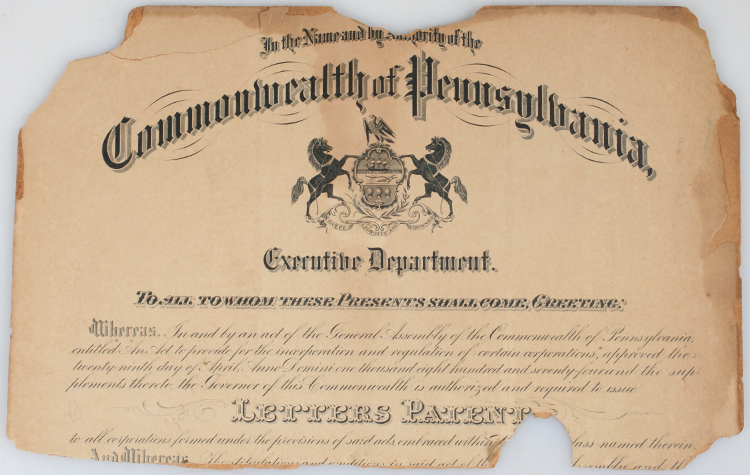 In the Name and by Authority of the
Commonwealth of Pennsylvania,
Executive Department.
TO ALL TO WHOM THESE PRESENTS SHALL COME, GREETING:
Whereas, In and by an act of the General Assembly of the Commonwealth of Pennsylvania,
entitled An Act to provide for the incorporation and regulation of certain corporations, approved the
twenty ninth day of April, Anno Domini one thousand eight hundred and seventy four and the sup
plements thereto, the Governor of this Commonwealth is authorized and required to issue
LETTERS PATENT
to all corporations formed under the provisions of said acts, embraced within lass named therein.
And Whereas, The stipulations and conditions in said act of